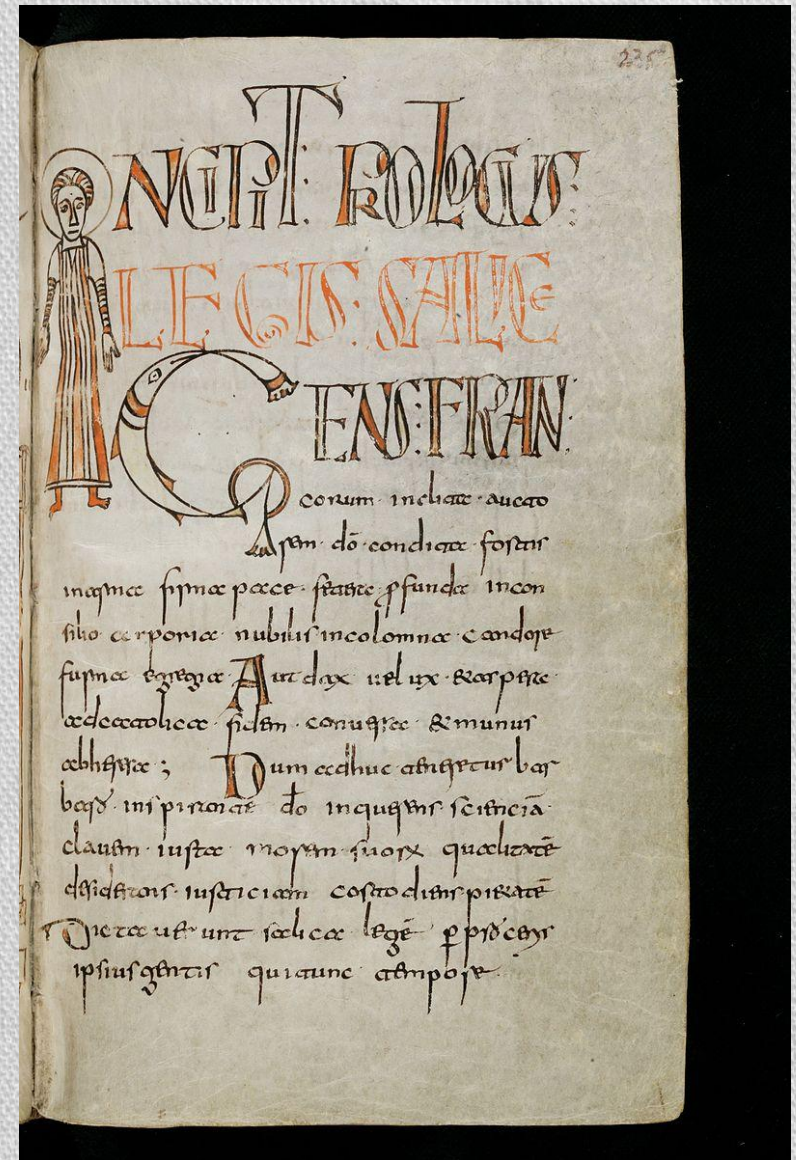 235
INCIPIT: PROLOGUS:
LEGIS: SALICE
GENS: FRAN
corum · inclita · aucto
rem · dō · condita · fortis
inarma firma pace · ꝓfunda incon
silio corporia nubilis incolomna candore
forma egregia Aut dax uel ux &aspere
adcatolica fidem · conuersa &munus
abheresa ; Dum adhuc teneretur bar
baro · inspirante dō inquerens · scienciā ·
clauem · iusta morem suorꝝ qualitatē
desiderans · iusticiam costodiens pietatē
Dictauerunt salica legē ꝑ proceris
ipsius gentis qui tunc tempore ·